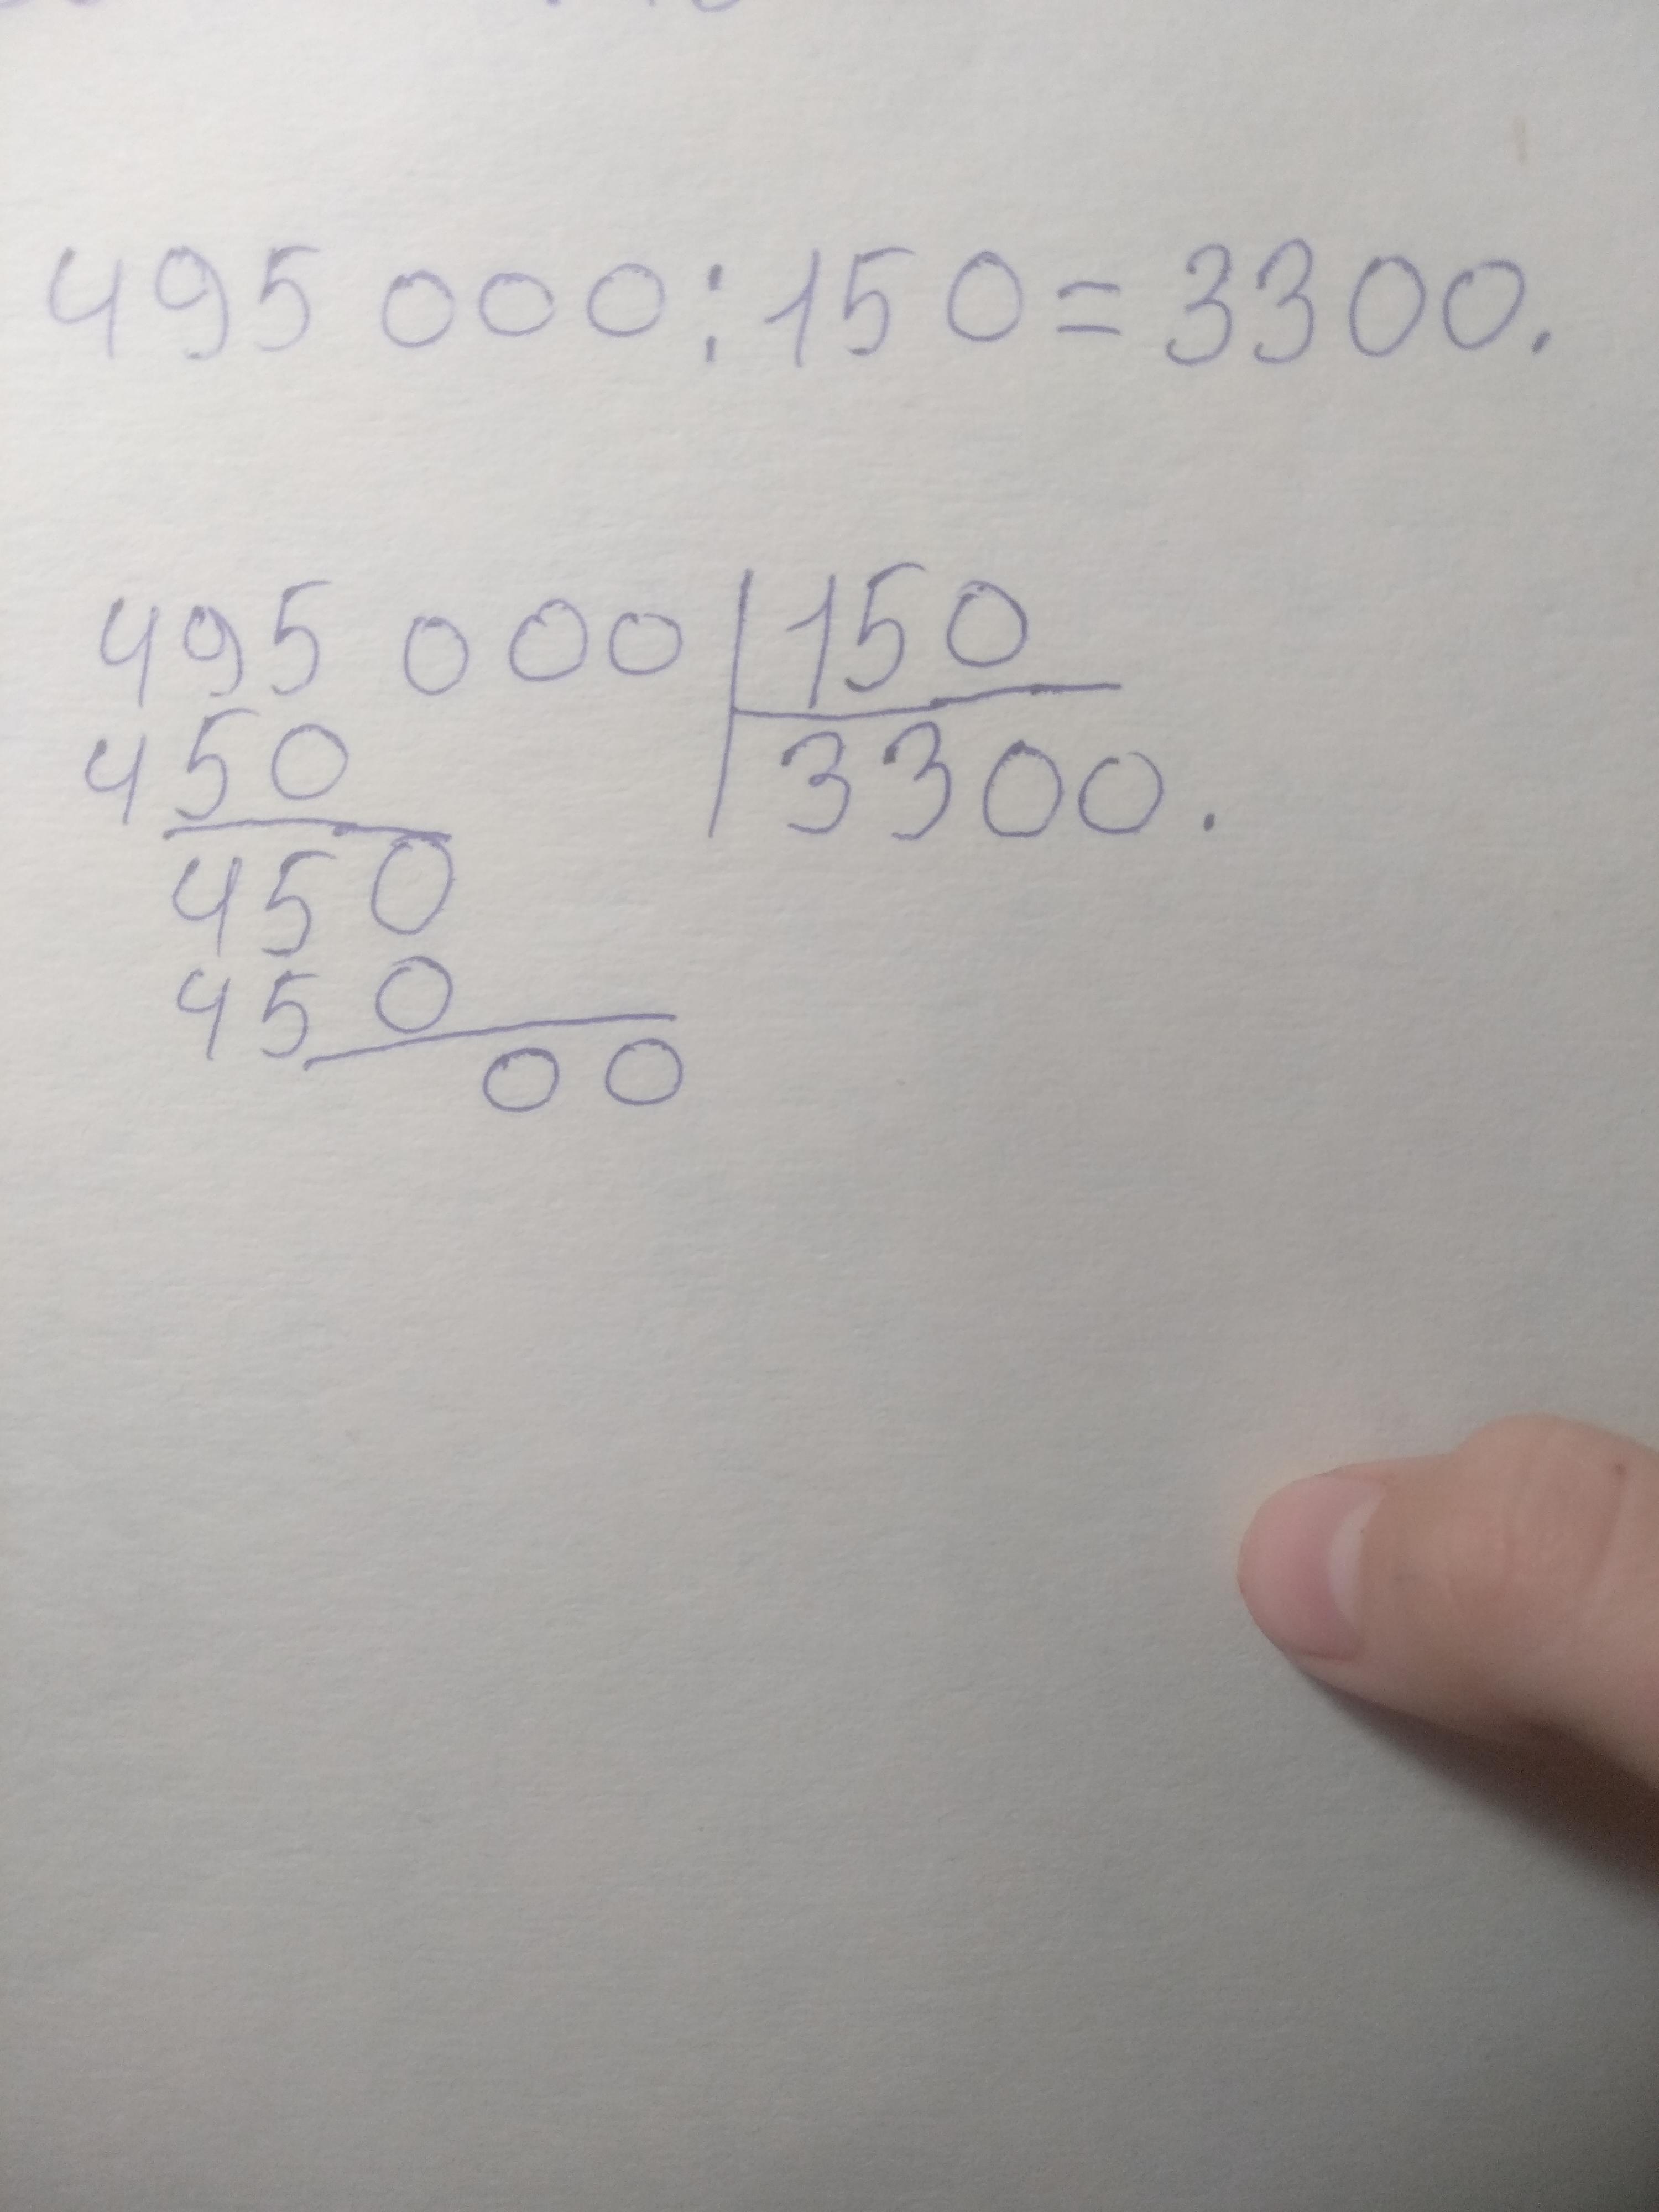 495 000 : 150 = 3300.
495 000 | 150
450 | 3300.
450
450
00